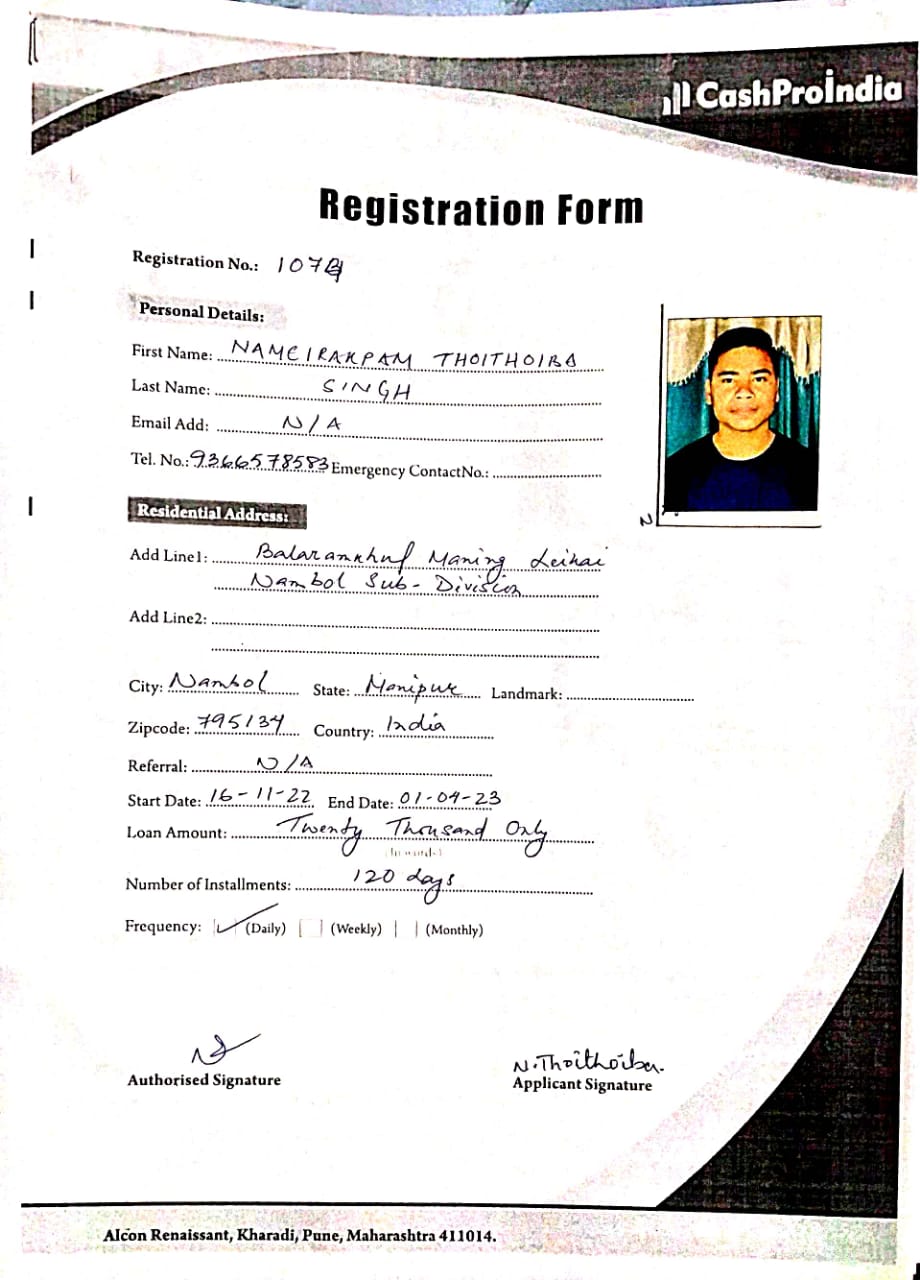 CashProIndia
Registration Form
Registration No.: 107
Personal Details:
First Name: NAMEIRAKPAM THOITHOIBA
Last Name: SINGH
Email Add: N/A
Tel. No.: 9366578583 Emergency ContactNo.:
Residential Address:
Add Line1: Balaramkhul Maning Leikai
Nambol Sub-Division
Add Line2:
City: Nambol State: Manipur Landmark:
Zipcode: 795134 Country: India
Referral: N/A
Start Date: 16-11-22 End Date: 01-04-23
Loan Amount: Twenty Thousand Only
(In words)
Number of Installments: 120 days
Frequency: (Daily) (Weekly) (Monthly)
N.Thoithoiba.
Authorised Signature Applicant Signature
Alcon Renaissant, Kharadi, Pune, Maharashtra 411014.